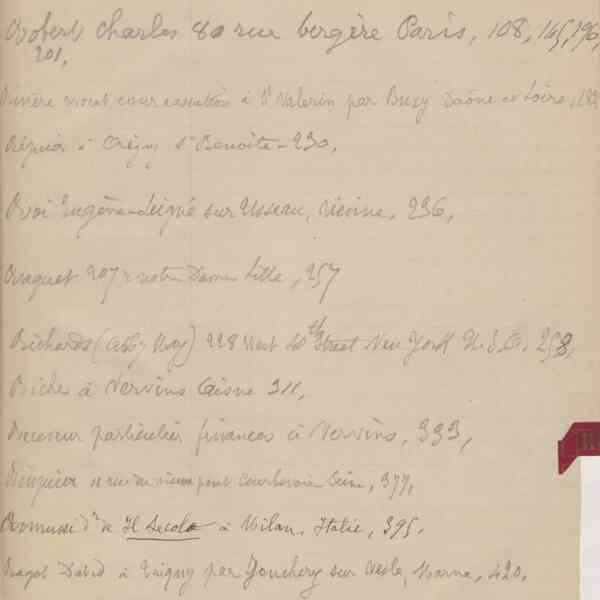 Robert Charles 80 rue bergère Paris, 108, 145, 196,
201,
cour à St Valerin par Buxy Saône et Loire, 182
Régnier à Crégny St Benoite - 230,
Roi Eugène - Leigné sur Usseau, Vienne, 236,
Raquet 207 r notre Dame Lille, 257
Richards (Abby May) 228 West 40th Street New York U.S.A. 258,
Riche à Vervins Aisne 311,
Receveur particulier finances à Vervins, 333,
11 rue du vieux pont Courbevoie Seine, 377,
Romussi Dr de Il Secolo à Milan, Italie, 395,
Ragot David à Trigny par Jonchery sur Vesle, Marne, 420,
R